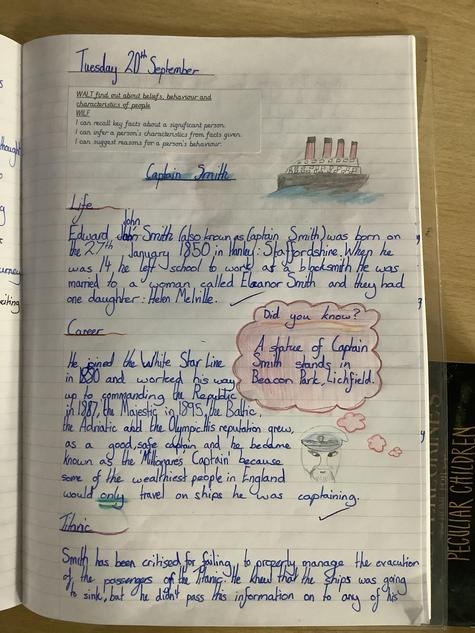 Tuesday 20th September
WALT find out about beliefs, behaviour and
characteristics of people
WILF
I can recall key facts about a significant person.
I can infer a person's characteristics from facts given.
I can suggest reasons for a person's behaviour.
Captain Smith
Life
John
Edward Smith (also known as Captain Smith) was born on
the 27th January 1850 in Hanley: Staffordshire. When he
was 14, he left school to work as a blacksmith. He was
married to a woman called Eleanor Smith and they had
one daughter: Helen Melville.
Did you know?
A statue of Captain
Smith stands in
Beacon Park, Lichfield.
Career
He joined the White Star Line
in 1880 and worked his way
up to commanding the Republic
in 1987, the Majestic in 1895, the Baltic,
the Adriatic and the Olympic. His reputation grew,
as a good, safe captain and he became
known as the Millonares 'Captain' because
some of the wealthiest people in England
would only travel on ships he was captaining.
Titanic
Smith has been critised for failing to properly manage the evacution
of the passengers of the Titanic. He knew that the ships was going
to sink, but he didn't pass this information on to any of his
PECULIAR CHILDREN